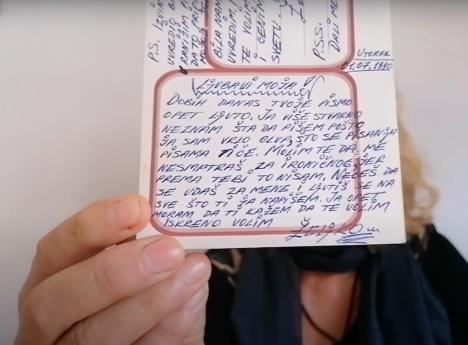 P.S.
UVREDIO
DA TO
TE VOLIM
I CENIM
SVETU.
P.S.S.
DALI
UTORAK
01.07.1980
LJUBAVI MOJA!
DOBIH DANAS TVOJE PISMO
OPET LJUTO, JA VIŠE STVARNO
NEZNAM ŠTA DA PIŠEM POŠTO
JA SAM VRLO GLUP, ŠTO SE PISANJA
PISAMA TIČE. MOLIM TE DA ME
NESMATRAŠ ZA IRONIČNOG JER
PREMA TEBI TO NISAM, NEĆEŠ DA
SE UDAŠ ZA MENE I LJUTIŠ SE NA
SVE ŠTO TI JA NAPIŠEM. JA OPET
MORAM DA TI KAŽEM DA TE VOLIM
ISKRENO VOLIM